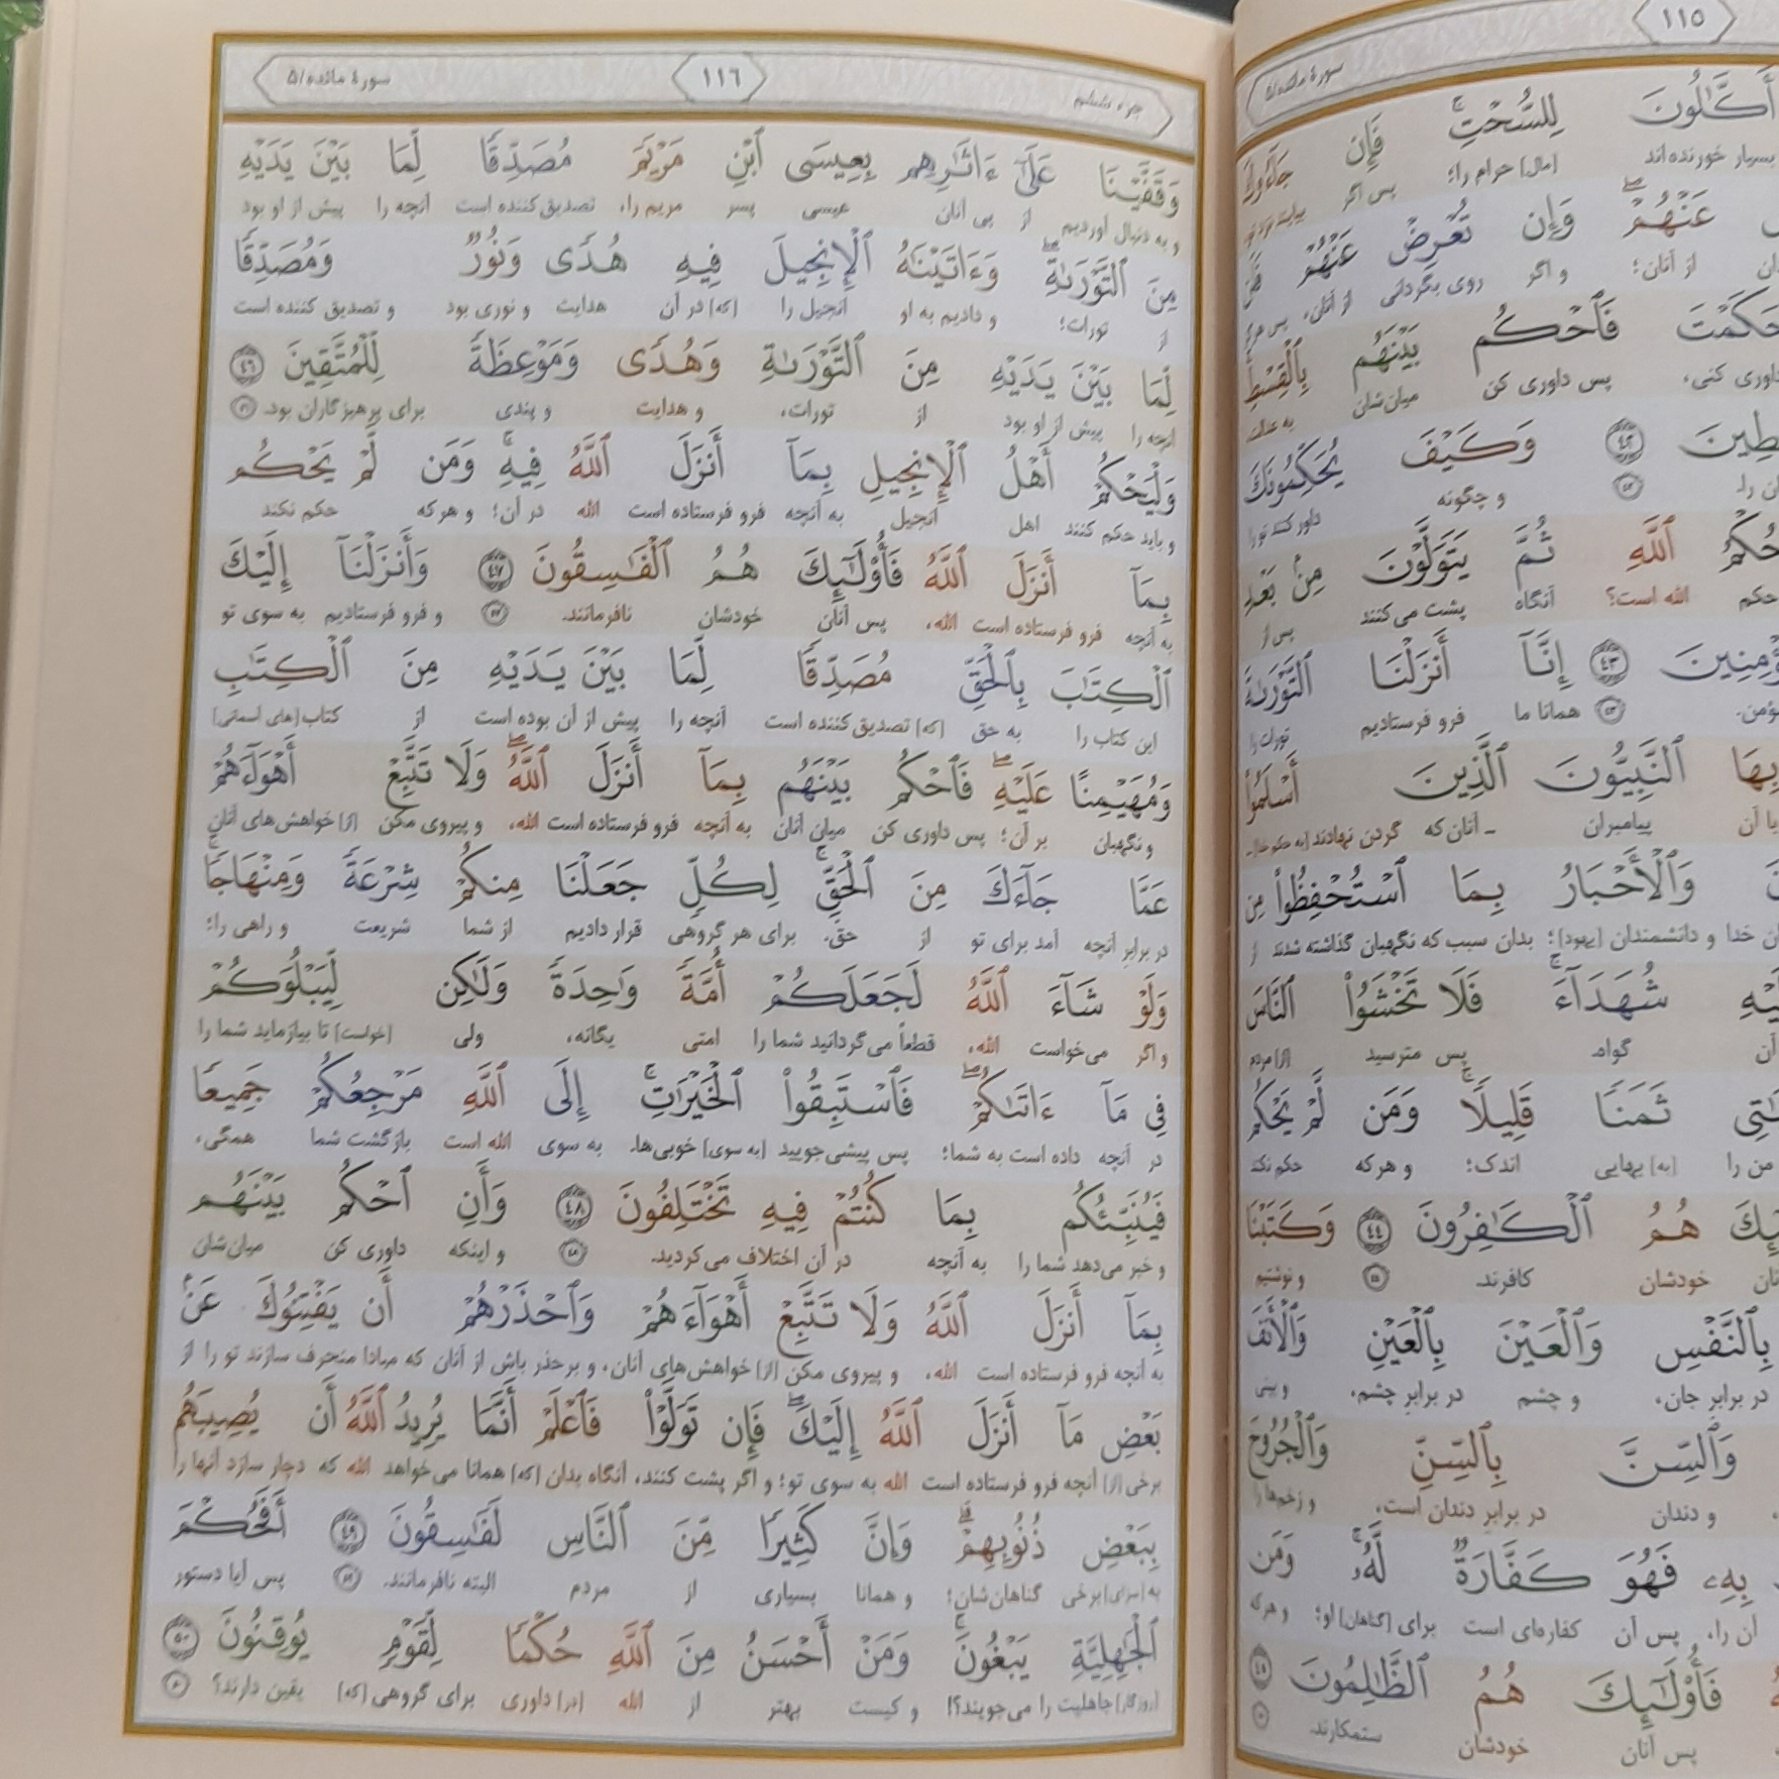 ١١٥
سورهٔ مائده/۵
أَكَّٰلُونَ لِلسُّحْتِۚ فَإِن جَآءُوكَ
بسیار خورنده‌اند [مال] حرام را؛ پس اگر
عَنْهُمْۖ وَإِن تُعْرِضْ عَنْهُمْ
از آنان؛ و اگر روی بگردانی از آنان،
حَكَمْتَ فَٱحْكُم بَيْنَهُم بِٱلْقِسْطِ
داوری کنی، پس داوری کن میان‌شان به عدالت
وَكَيْفَ يُحَكِّمُونَكَ
و چگونه داور کنند تو را
حُكْمُ ٱللَّهِ ثُمَّ يَتَوَلَّوْنَ مِنۢ بَعْدِ
حکم الله است؟ آنگاه پشت می‌کنند پس از
٤٣ إِنَّآ أَنزَلْنَا ٱلتَّوْرَىٰةَ
همانا ما فرو فرستادیم تورات را
بِهَا ٱلنَّبِيُّونَ ٱلَّذِينَ أَسْلَمُوا۟
با آن پیامبران ـ آنان که گردن نهادند
وَٱلْأَحْبَارُ بِمَا ٱسْتُحْفِظُوا۟ مِن
خدا و دانشمندان [یهود]؛ بدان سبب که نگهبان گذاشته شدند از
شُهَدَآءَۚ فَلَا تَخْشَوُا۟ ٱلنَّاسَ
آن گواه. پس مترسید [از] مردم
ثَمَنًا قَلِيلًاۚ وَمَن لَّمْ يَحْكُم
من را [به] بهایی اندک؛ و هر که حکم نکند
هُمُ ٱلْكَٰفِرُونَ ٤٤ وَكَتَبْنَا
خودشان کافرند. و نوشتیم
بِٱلنَّفْسِ وَٱلْعَيْنَ بِٱلْعَيْنِ وَٱلْأَنفَ
در برابرِ جان، و چشم در برابرِ چشم، و بینی
وَٱلسِّنَّ بِٱلسِّنِّ وَٱلْجُرُوحَ
و دندان در برابرِ دندان است، و زخم‌ها را
بِهِۦ فَهُوَ كَفَّارَةٌ لَّهُۥۚ وَمَن
آن را، پس آن کفاره‌ای است برای [گناهان] او؛ و هر که
فَأُو۟لَٰٓئِكَ هُمُ ٱلظَّٰلِمُونَ ٤٥
پس آنان خودشان ستمکارند.
جزء ششم ١١٦ سورهٔ مائده/۵
وَقَفَّيْنَا عَلَىٰٓ ءَاثَٰرِهِم بِعِيسَى ٱبْنِ مَرْيَمَ مُصَدِّقًا لِّمَا بَيْنَ يَدَيْهِ
و به دنبال آوردیم از پی آنان عیسی پسر مریم را، تصدیق کننده است آنچه را پیش از او بود
مِنَ ٱلتَّوْرَىٰةِۖ وَءَاتَيْنَٰهُ ٱلْإِنجِيلَ فِيهِ هُدًى وَنُورٌ وَمُصَدِّقًا
از تورات؛ و دادیم به او انجیل را [که] در آن هدایت و نوری بود و تصدیق کننده است
لِّمَا بَيْنَ يَدَيْهِ مِنَ ٱلتَّوْرَىٰةِ وَهُدًى وَمَوْعِظَةً لِّلْمُتَّقِينَ ٤٦
آنچه را پیش از او بود از تورات، و هدایت و پندی برای پرهیزگاران بود.
وَلْيَحْكُمْ أَهْلُ ٱلْإِنجِيلِ بِمَآ أَنزَلَ ٱللَّهُ فِيهِۚ وَمَن لَّمْ يَحْكُم
و باید حکم کنند اهل انجیل به آنچه فرو فرستاده است الله در آن؛ و هر که حکم نکند
بِمَآ أَنزَلَ ٱللَّهُ فَأُو۟لَٰٓئِكَ هُمُ ٱلْفَٰسِقُونَ ٤٧ وَأَنزَلْنَآ إِلَيْكَ
به آنچه فرو فرستاده است الله، پس آنان خودشان نافرمانند. و فرو فرستادیم به سوی تو
ٱلْكِتَٰبَ بِٱلْحَقِّ مُصَدِّقًا لِّمَا بَيْنَ يَدَيْهِ مِنَ ٱلْكِتَٰبِ
این کتاب را به حق [که] تصدیق کننده است آنچه را پیش از آن بوده است از کتاب[های آسمانی]
وَمُهَيْمِنًا عَلَيْهِۖ فَٱحْكُم بَيْنَهُم بِمَآ أَنزَلَ ٱللَّهُۖ وَلَا تَتَّبِعْ أَهْوَآءَهُمْ
و نگهبان بر آن؛ پس داوری کن میان آنان به آنچه فرو فرستاده است الله، و پیروی مکن [از] خواهش‌های آنان
عَمَّا جَآءَكَ مِنَ ٱلْحَقِّۚ لِكُلٍّ جَعَلْنَا مِنكُمْ شِرْعَةً وَمِنْهَاجًاۚ
در برابرِ آنچه آمد برای تو از حق. برای هر گروهی قرار دادیم از شما شریعت و راهی را؛
وَلَوْ شَآءَ ٱللَّهُ لَجَعَلَكُمْ أُمَّةً وَٰحِدَةً وَلَٰكِن لِّيَبْلُوَكُمْ
و اگر می‌خواست الله، قطعاً می‌گردانید شما را امتی یگانه، ولی [خواست] تا بیازماید شما را
فِى مَآ ءَاتَىٰكُمْۖ فَٱسْتَبِقُوا۟ ٱلْخَيْرَٰتِۚ إِلَى ٱللَّهِ مَرْجِعُكُمْ جَمِيعًا
در آنچه داده است به شما؛ پس پیشی جویید [به سوی] خوبی‌ها. به سوی الله است بازگشت شما همگی،
فَيُنَبِّئُكُم بِمَا كُنتُمْ فِيهِ تَخْتَلِفُونَ ٤٨ وَأَنِ ٱحْكُم بَيْنَهُم
و خبر می‌دهد شما را به آنچه در آن اختلاف می‌کردید. و اینکه داوری کن میان‌شان
بِمَآ أَنزَلَ ٱللَّهُ وَلَا تَتَّبِعْ أَهْوَآءَهُمْ وَٱحْذَرْهُمْ أَن يَفْتِنُوكَ عَنۢ
به آنچه فرو فرستاده است الله، و پیروی مکن [از] خواهش‌های آنان، و برحذر باش از آنان که مبادا منحرف سازند تو را از
بَعْضِ مَآ أَنزَلَ ٱللَّهُ إِلَيْكَۖ فَإِن تَوَلَّوْا۟ فَٱعْلَمْ أَنَّمَا يُرِيدُ ٱللَّهُ أَن يُصِيبَهُم
برخی [از] آنچه فرو فرستاده است الله به سوی تو؛ و اگر پشت کنند، آنگاه بدان [که] همانا می‌خواهد الله که دچار سازد آنها را
بِبَعْضِ ذُنُوبِهِمْۗ وَإِنَّ كَثِيرًا مِّنَ ٱلنَّاسِ لَفَٰسِقُونَ ٤٩ أَفَحُكْمَ
به [سزای] برخی گناهان‌شان؛ و همانا بسیاری از مردم البته نافرمانند. پس آیا دستور
ٱلْجَٰهِلِيَّةِ يَبْغُونَۚ وَمَنْ أَحْسَنُ مِنَ ٱللَّهِ حُكْمًا لِّقَوْمٍ يُوقِنُونَ ٥٠
[روزگار] جاهلیت را می‌جویند؟! و کیست بهتر از الله [در] داوری برای گروهی [که] یقین دارند؟